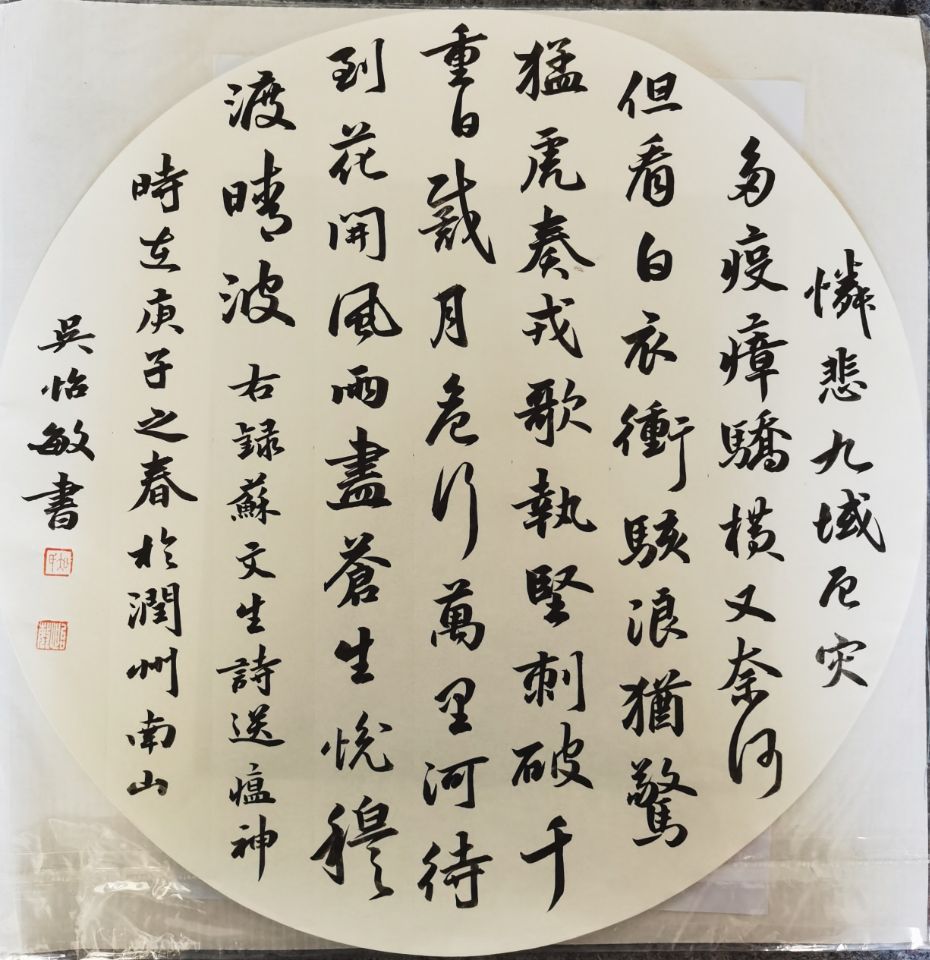 憐悲九域厄灾
多疫瘴驕横又奈何
但看白衣衝駭浪猶驚
猛虎奏戎歌執堅刺破千
重日戴月危行萬里河待
到花開風雨盡蒼生悅穆
渡晴波 右録蘇文生詩送瘟神
時在庚子之春於潤州南山
吳怡敏書